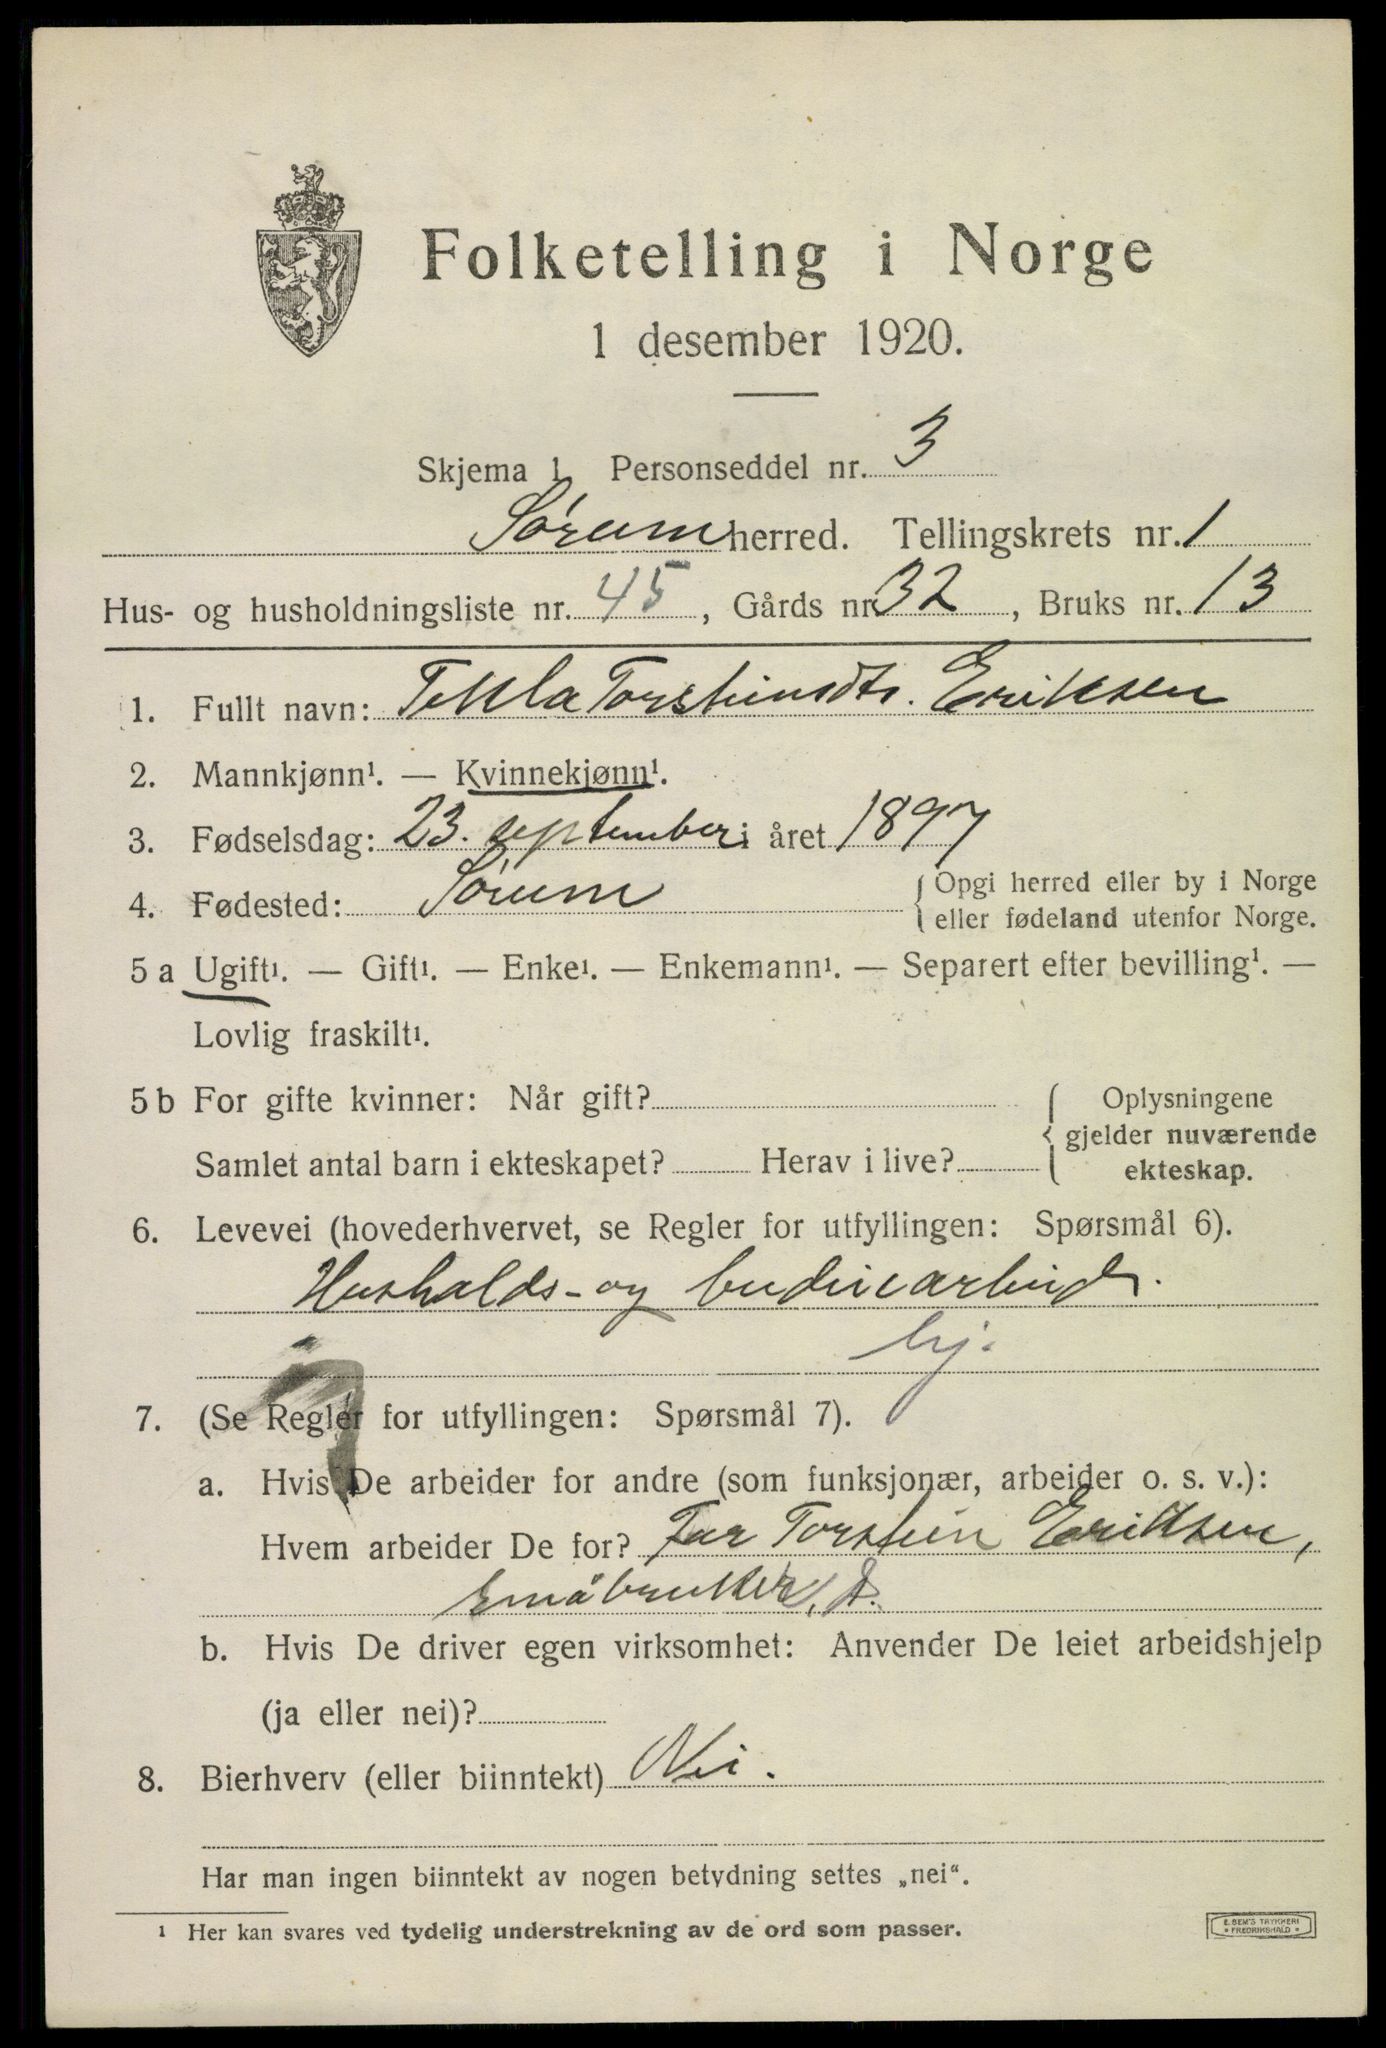 Folketelling i Norge
1 desember 1920.
Skjema 1 Personseddel nr. 3
Sørum herred. Tellingskrets nr. 1
Hus- og husholdningsliste nr. 45, Gårds nr. 32, Bruks nr. 13
1. Fullt navn: Tekla Torsteinsdtr. Eriksen
2. Mannkjønn¹. — Kvinnekjønn¹.
3. Fødselsdag: 23. september i året 1897
4. Fødested: Sørum { Opgi herred eller by i Norge
eller fødeland utenfor Norge.
5 a Ugift¹. — Gift¹. — Enke¹. — Enkemann¹. — Separert efter bevilling¹. —
Lovlig fraskilt¹.
5 b For gifte kvinner: Når gift?
Samlet antal barn i ekteskapet? Herav i live?
{ Oplysningene
gjelder nuværende
ekteskap.
6. Levevei (hovederhvervet, se Regler for utfyllingen: Spørsmål 6).
Husholds- og budeiearbeid.
hj.
7. (Se Regler for utfyllingen: Spørsmål 7).
a. Hvis De arbeider for andre (som funksjonær, arbeider o. s. v.):
Hvem arbeider De for? Far Torstein Eriksen,
småbruker,
b. Hvis De driver egen virksomhet: Anvender De leiet arbeidshjelp
(ja eller nei)?
8. Bierhverv (eller biinntekt) Nei.
Har man ingen biinntekt av nogen betydning settes „nei“.
¹ Her kan svares ved tydelig understrekning av de ord som passer.
E. SEM'S TRYKKERI
• FREDRIKSHALD •